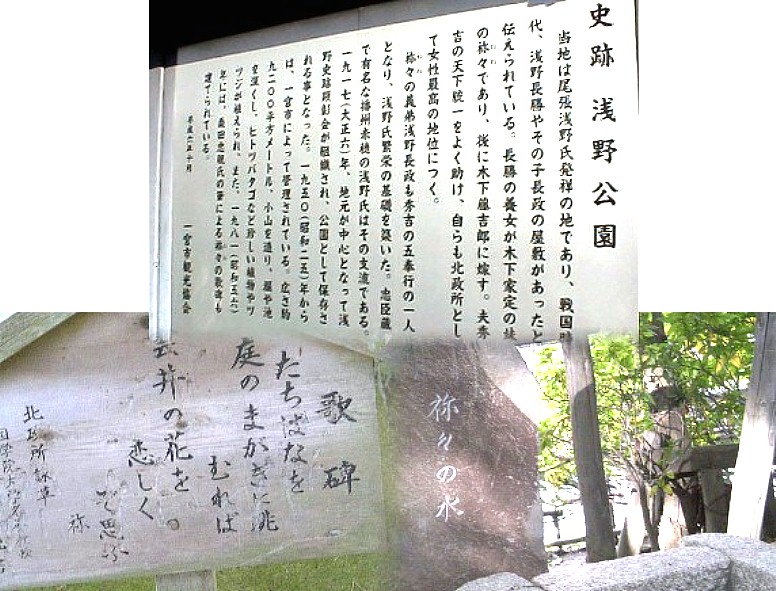 史跡 浅野公園
当地は尾張浅野氏発祥の地であり、戦国時
代、浅野長勝やその子長政の屋敷があったと
伝えられている。長勝の養女が木下家定の妹
の祢々であり、後に木下藤吉郎に嫁す。夫秀
吉の天下統一をよく助け、自らも北政所とし
て女性最高の地位につく。
祢々の義弟浅野長政も秀吉の五奉行の一人
となり、浅野氏繁栄の基礎を築いた。忠臣蔵
で有名な播州赤穂の浅野氏はその支流である。
一九一七(大正六)年、地元が中心となって浅
野史跡顕彰会が組織され、公園として保存さ
れる事となった。一九五〇(昭和二五)年から
は、一宮市によって管理されている。広さ約
九二〇〇平方メートル、小山を造り、堀や池
を深くし、ヒトツバタゴなど珍しい植物やツ
ツジが植えられ、また、一九八一(昭和五六)
年には、森田忠親氏の筆による祢々の歌碑も
建てられている。
一宮市観光協会
歌碑
たちばなを
庭のまがきに洮
むれば
雲井の花を
恋しく
ぞ思ふ
祢
北政所詠草
祢々の水